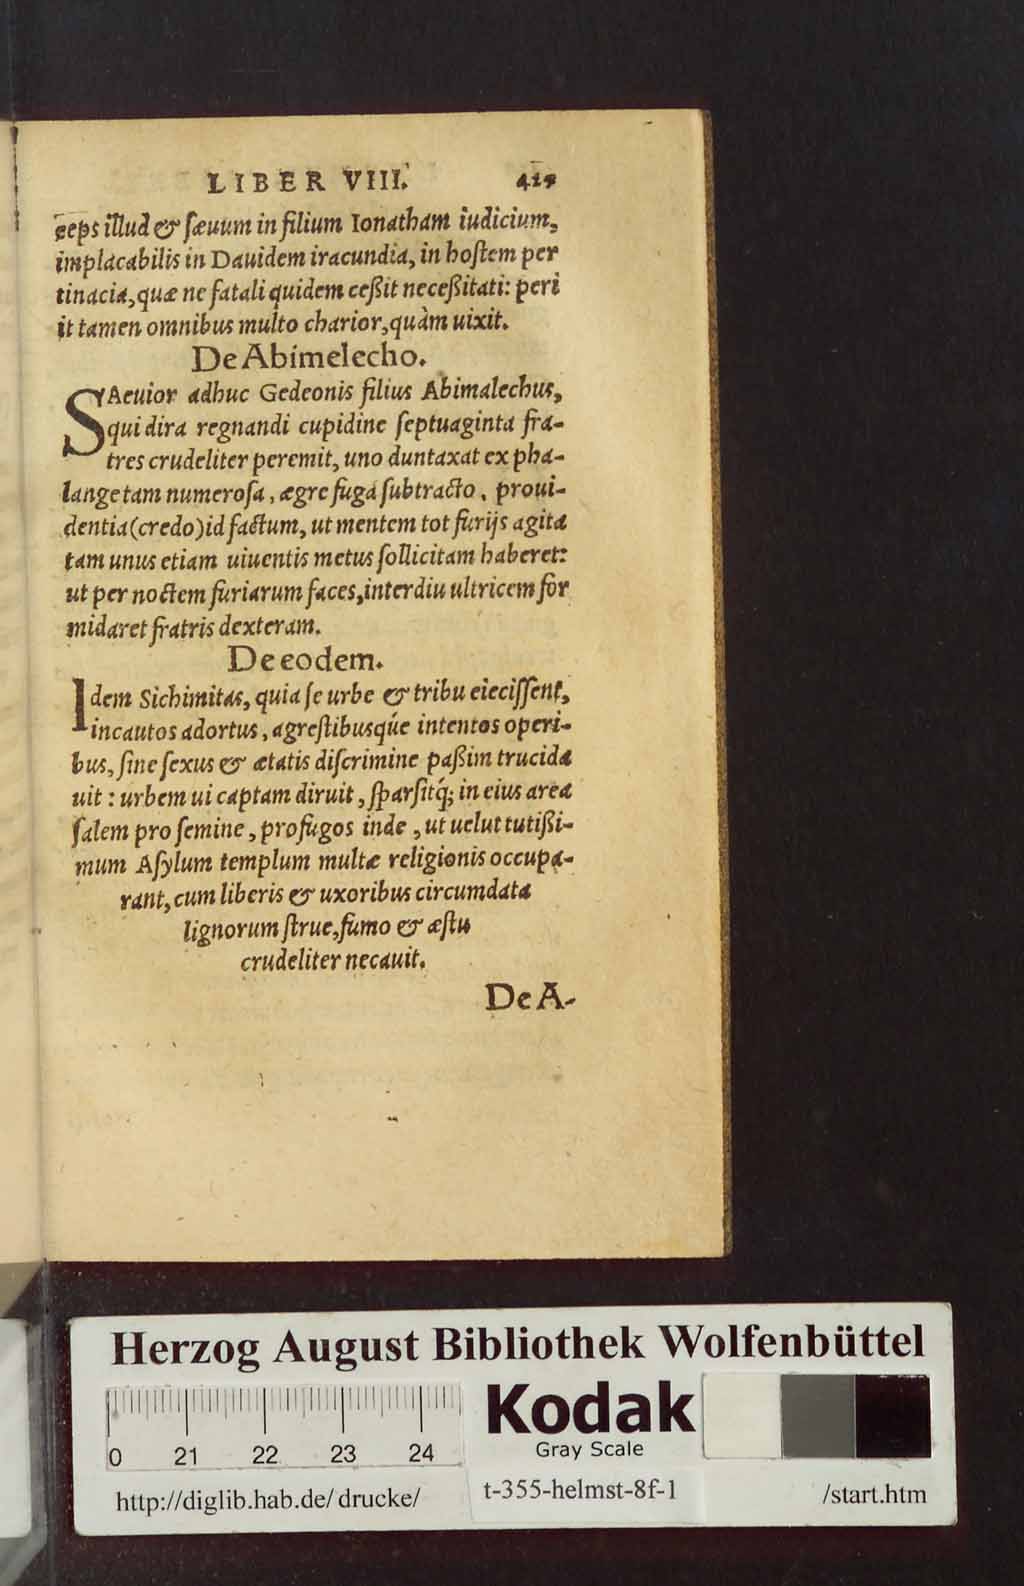 LIBER VIII.
ceps illud & sæuum in filium Ionatham iudicium,
implacabilis in Dauidem iracundia, in hostem per
tinacia, quæ ne fatali quidem ceßit neceßitati: peri
it tamen omnibus multo charior, quàm uixit.
De Abimelecho.
SAeuior adhuc Gedeonis filius Abimalechus,
qui dira regnandi cupidine septuaginta fra-
tres crudeliter peremit, uno duntaxat ex pha-
lange tam numerosa, ægre fuga subtracto, proui-
dentia (credo) id factum, ut mentem tot furijs agita
tam unus etiam uiuentis metus sollicitam haberet:
ut per noctem furiarum faces, interdiu ultricem for
midaret fratris dexteram.
De eodem.
Idem Sichimitas, quia se urbe & tribu eiecissent,
incautos adortus, agrestibusqúe intentos operi-
bus, sine sexus & ætatis discrimine paßim trucida
uit: urbem ui captam diruit, sparsitq́; in eius area
salem pro semine, profugos inde, ut uelut tutißi-
mum Asylum templum multæ religionis occupa-
rant, cum liberis & uxoribus circumdata
lignorum strue, fumo & æstu
crudeliter necauit.
De A-
Herzog August Bibliothek Wolfenbüttel
Kodak
Gray Scale
0 21 22 23 24
http://diglib.hab.de/drucke/ t-355-helmst-8f-1 /start.htm